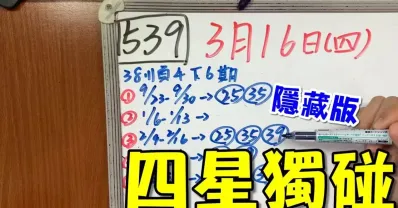 539 3月16日(四)
38順4下6期
① 9/23-9/30→㉕㉟
隱藏版
② 1/6-1/13→
③ 2/9-2/16→㉕㉟㊴
四星獨碰